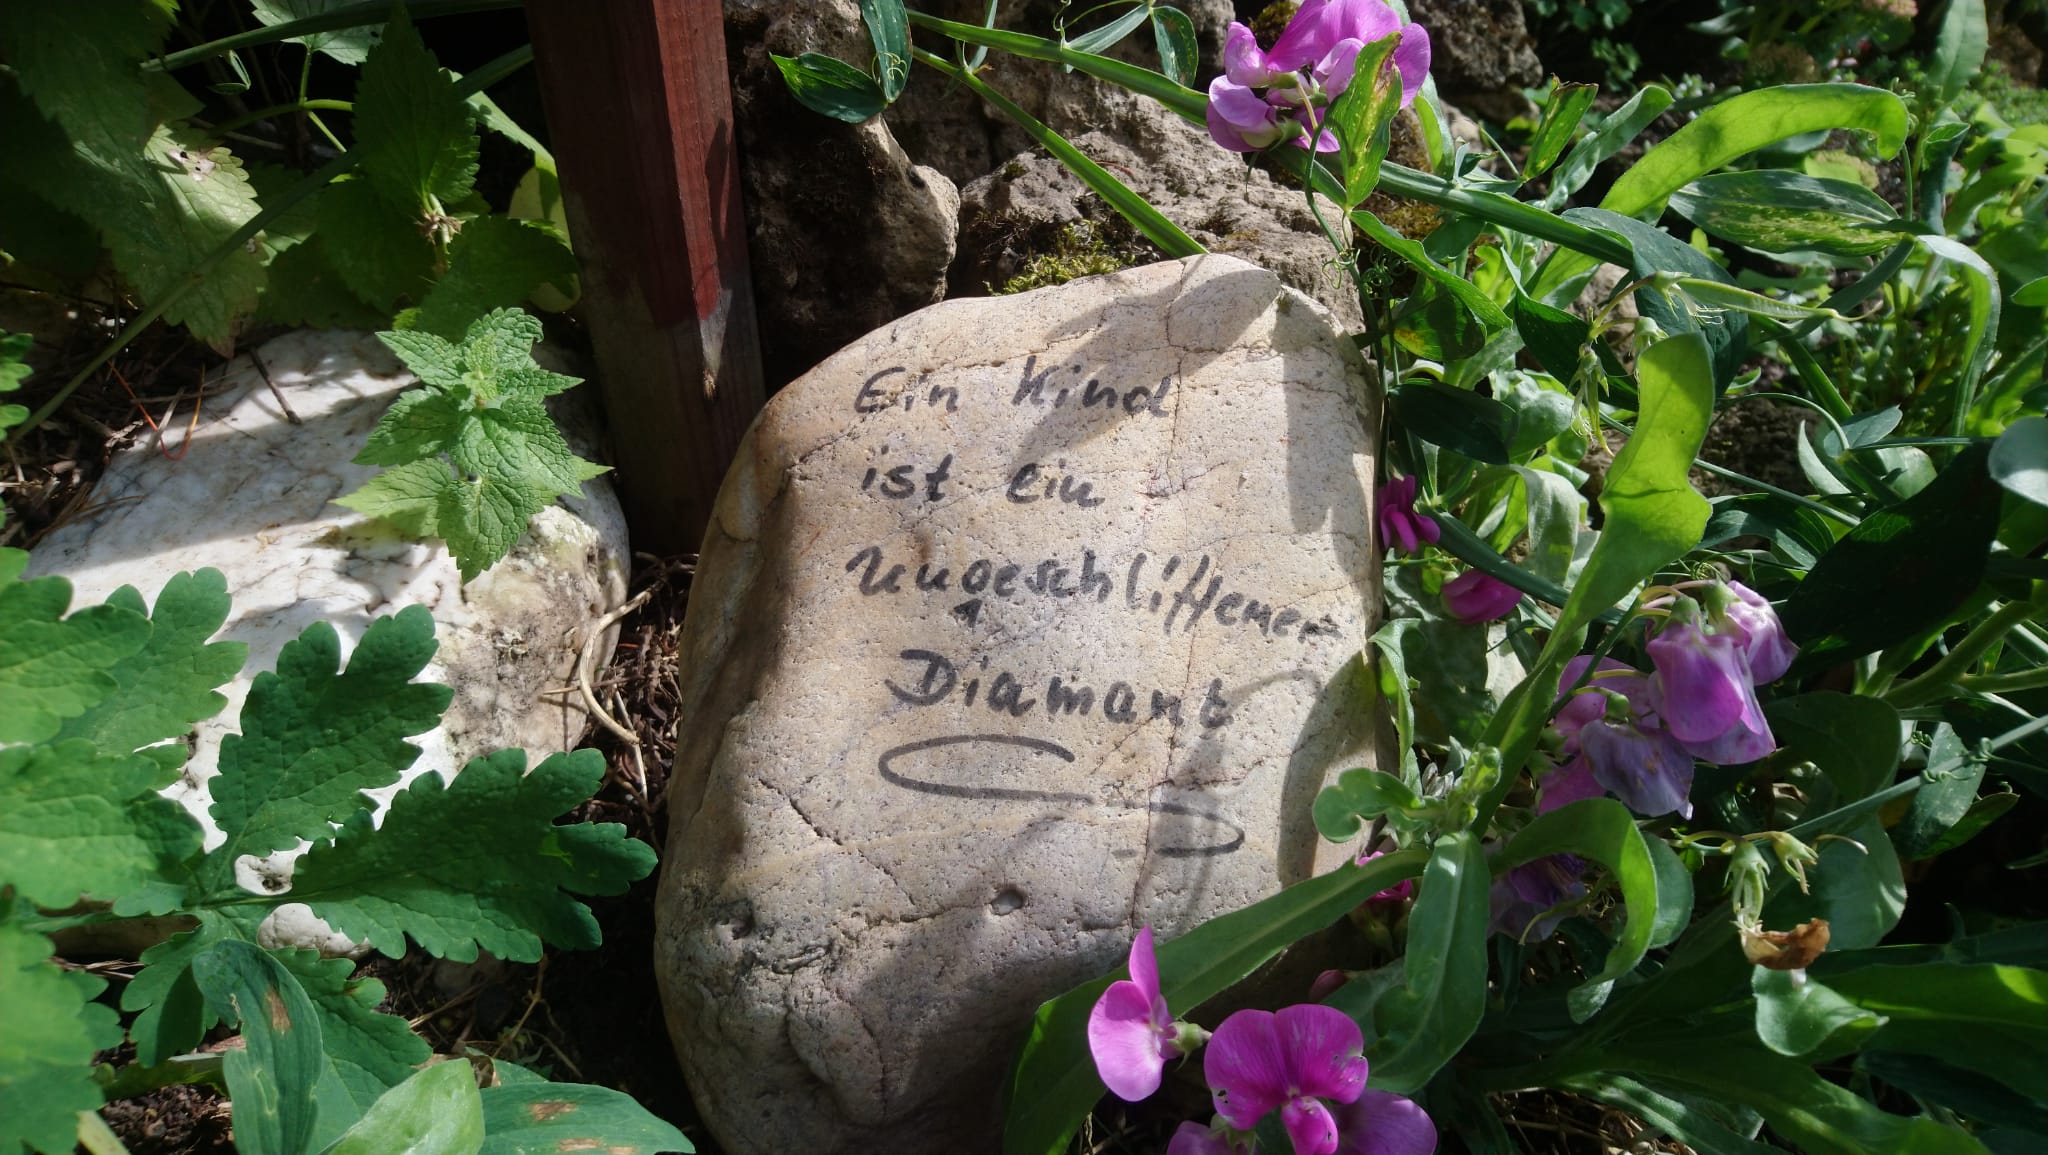 Ein Kind
ist ein
ungeschliffener
Diamant